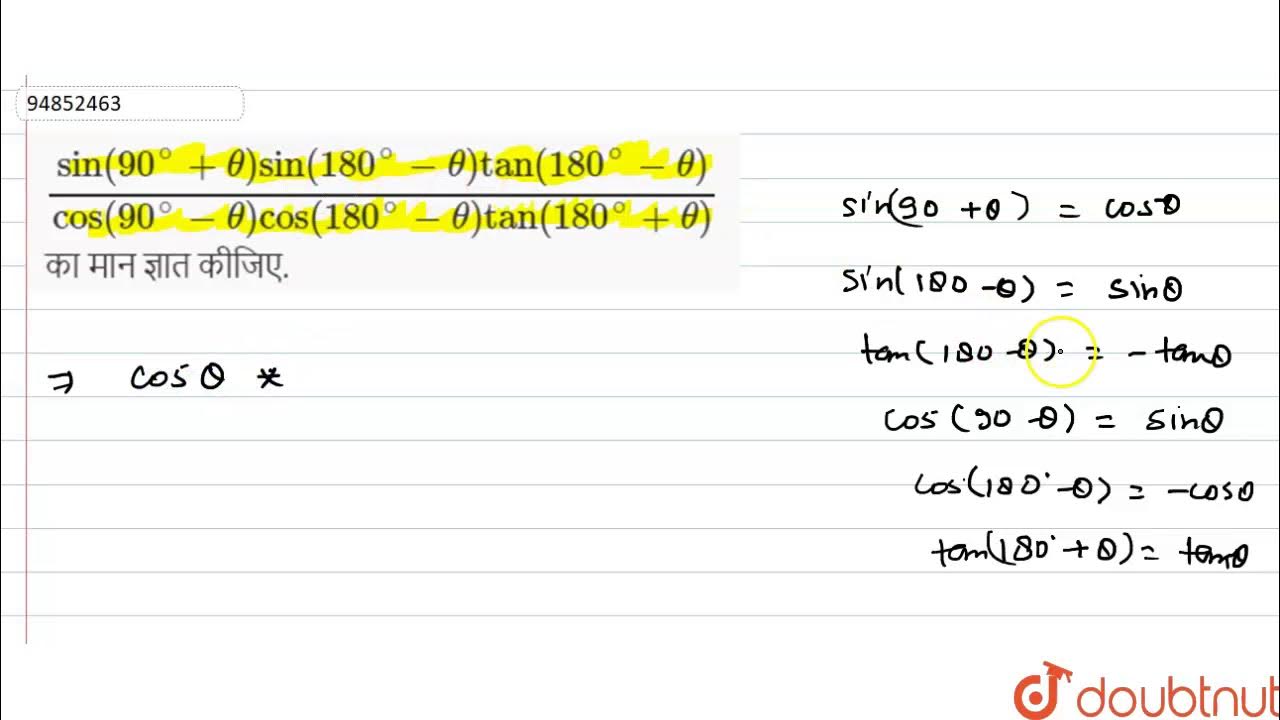 94852463
sin(90° + θ)sin(180° − θ)tan(180° − θ)
cos(90° − θ)cos(180° − θ)tan(180° + θ)
का मान ज्ञात कीजिए.
⇒ cos θ *
sin(90 + θ) = cosθ
sin(180 - θ) = sinθ
tan(180 - θ) = - tanθ
cos(90 - θ) = sinθ
cos(180° - θ) = - cosθ
tan(180° + θ) = tanθ
doubtnut